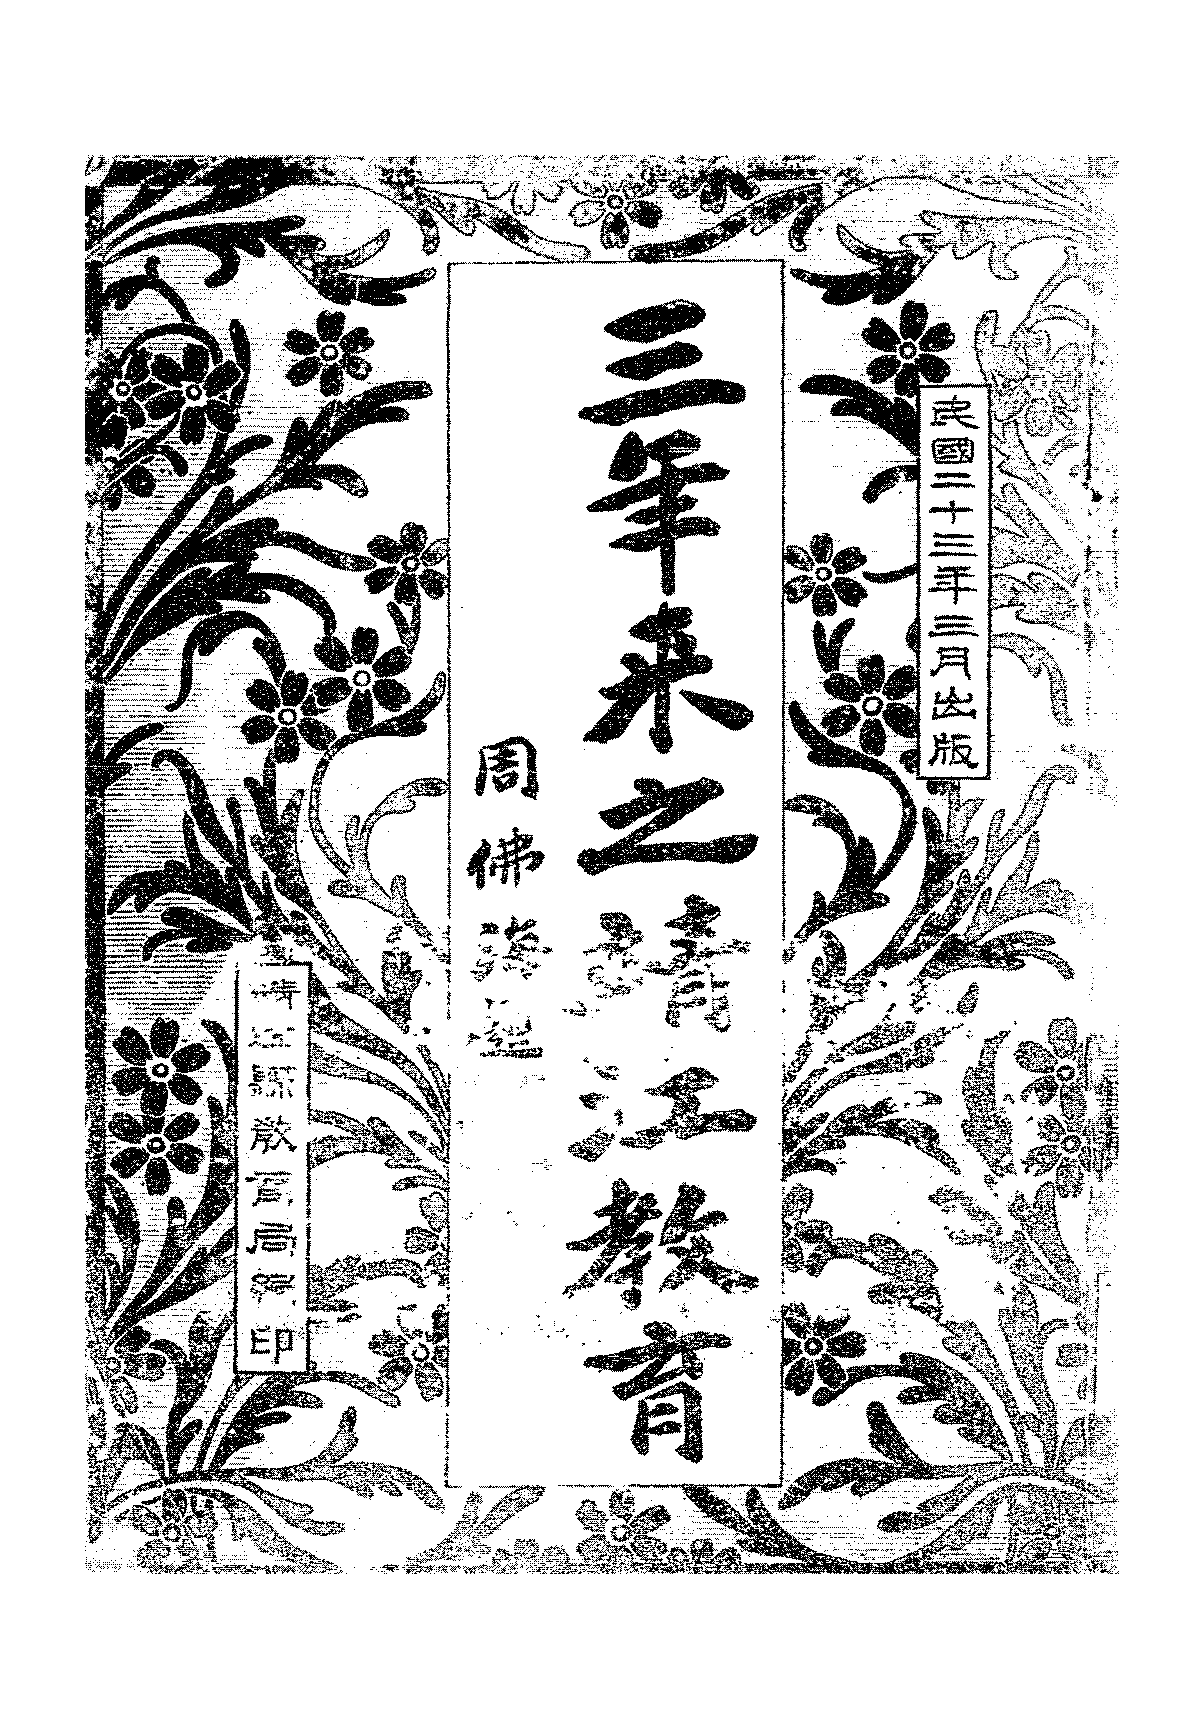 民國二十三年三月出版
三年來之靖江教育
周佛海題
靖江縣教育局編印